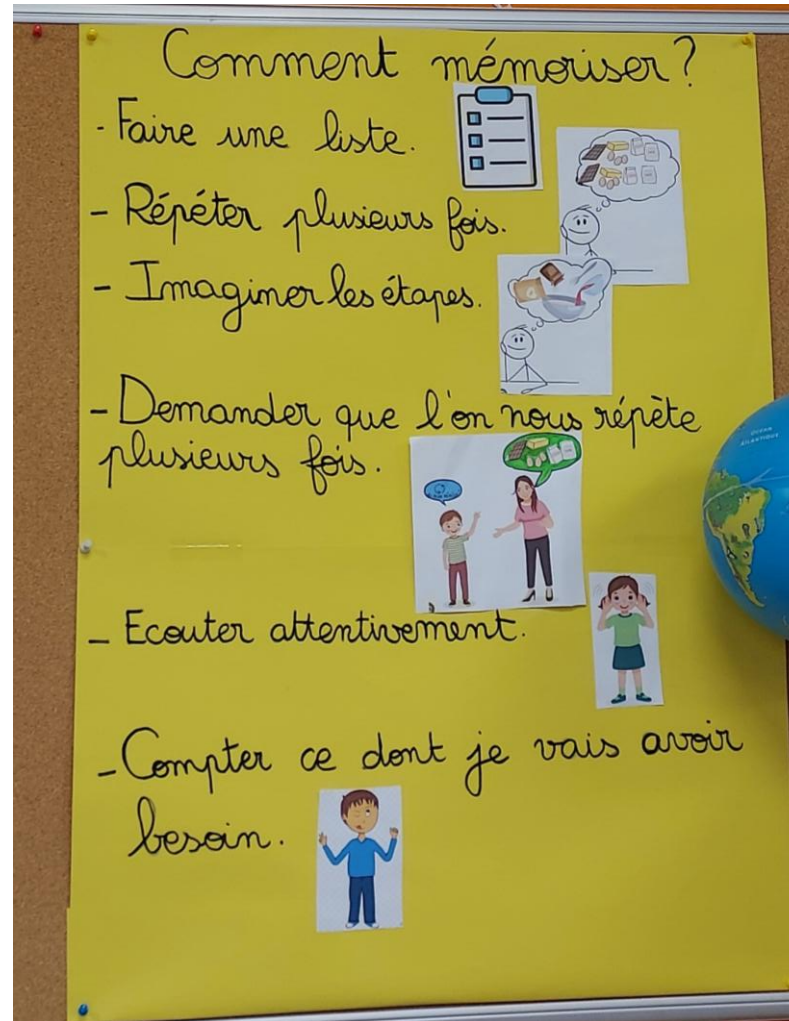 Comment mémoriser?
- Faire une liste.
- Répéter plusieurs fois.
- Imaginer les étapes.
- Demander que l'on nous répète
plusieurs fois.
- Ecouter attentivement.
- Compter ce dont je vais avoir
besoin.
OCEAN
ATLANTIQUE